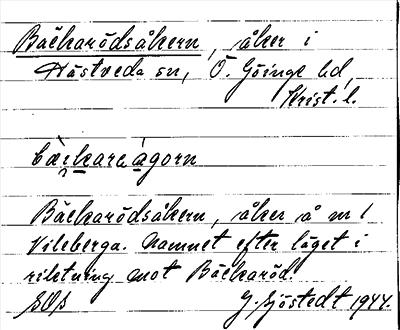 Bäckarödsåkern, åker i
Hästveda sn, Ö. Göinge hd,
Krist. l.
Bäckarödsåkern, åker å nr 1
Vileberga. Namnet efter läget i
riktning mot Bäckaröd.
G. Sjöstedt 1944.